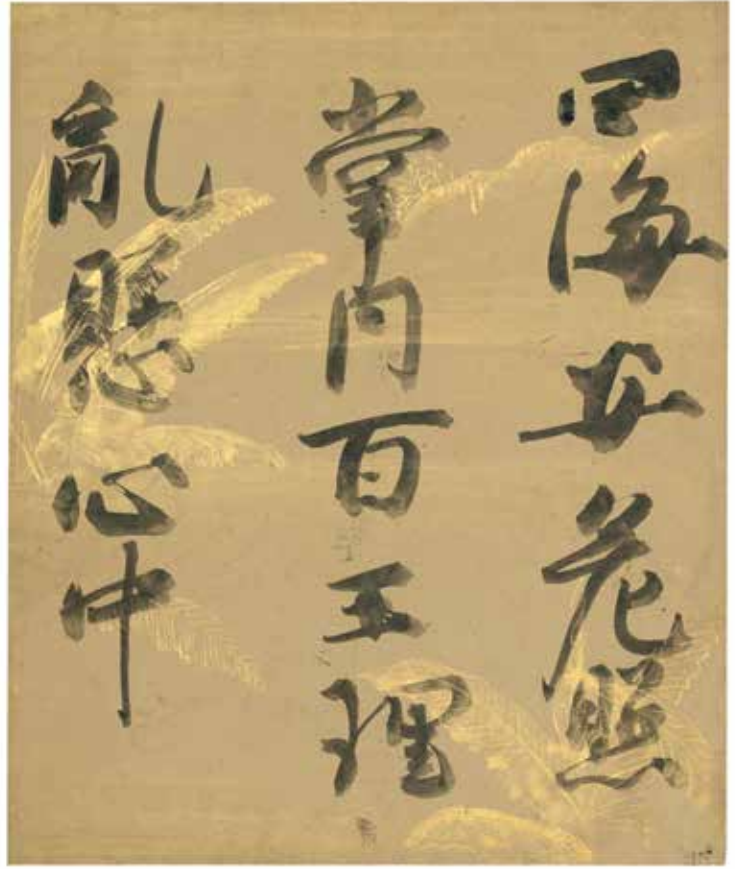 四海安危照
掌内百王理
亂懸心中